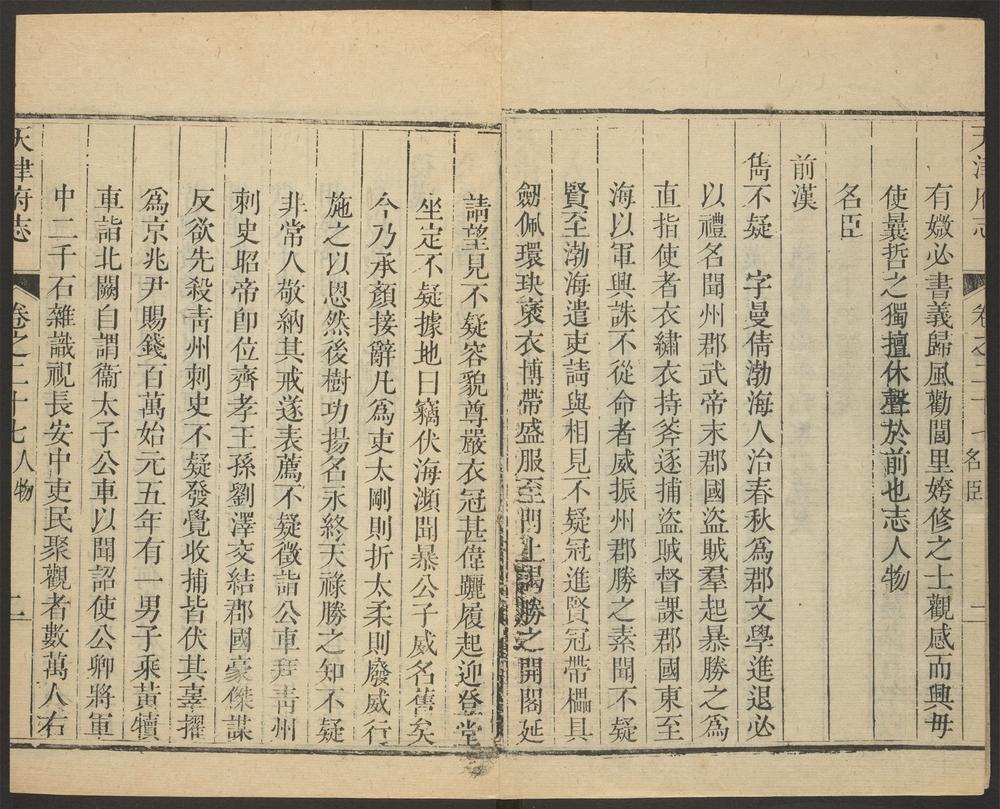 天津府志 卷之二十七 名臣 一
有媺必書義歸風勸閭里姱修之士觀感而興毋
使曩哲之獨擅休聲於前也志人物
名臣
前漢
雋不疑 字曼倩渤海人治春秋爲郡文學進退必
以禮名聞州郡武帝末郡國盜賊羣起暴勝之爲
直指使者衣繡衣持斧逐捕盜賊督課郡國東至
海以軍興誅不從命者威振州郡勝之素聞不疑
賢至渤海遣吏請與相見不疑冠進賢冠帶櫑具
劒佩環玦襃衣博帶盛服至門上謁勝之開閤延
請望見不疑容貌尊嚴衣冠甚偉躧履起迎登堂
坐定不疑據地曰竊伏海瀕聞暴公子威名舊矣
今乃承顏接辭凡爲吏太剛則折太柔則廢威行
施之以恩然後樹功揚名永終天祿勝之知不疑
非常人敬納其戒遂表薦不疑徵詣公車拜靑州
刺史昭帝卽位齊孝王孫劉澤交結郡國豪傑謀
反欲先殺靑州刺史不疑發覺收捕皆伏其辜擢
爲京兆尹賜錢百萬始元五年有一男子乘黃犢
車詣北闕自謂衞太子公車以聞詔使公卿將軍
中二千石雜識視長安中吏民聚觀者數萬人右
天津府志 卷之二十七 人物 二